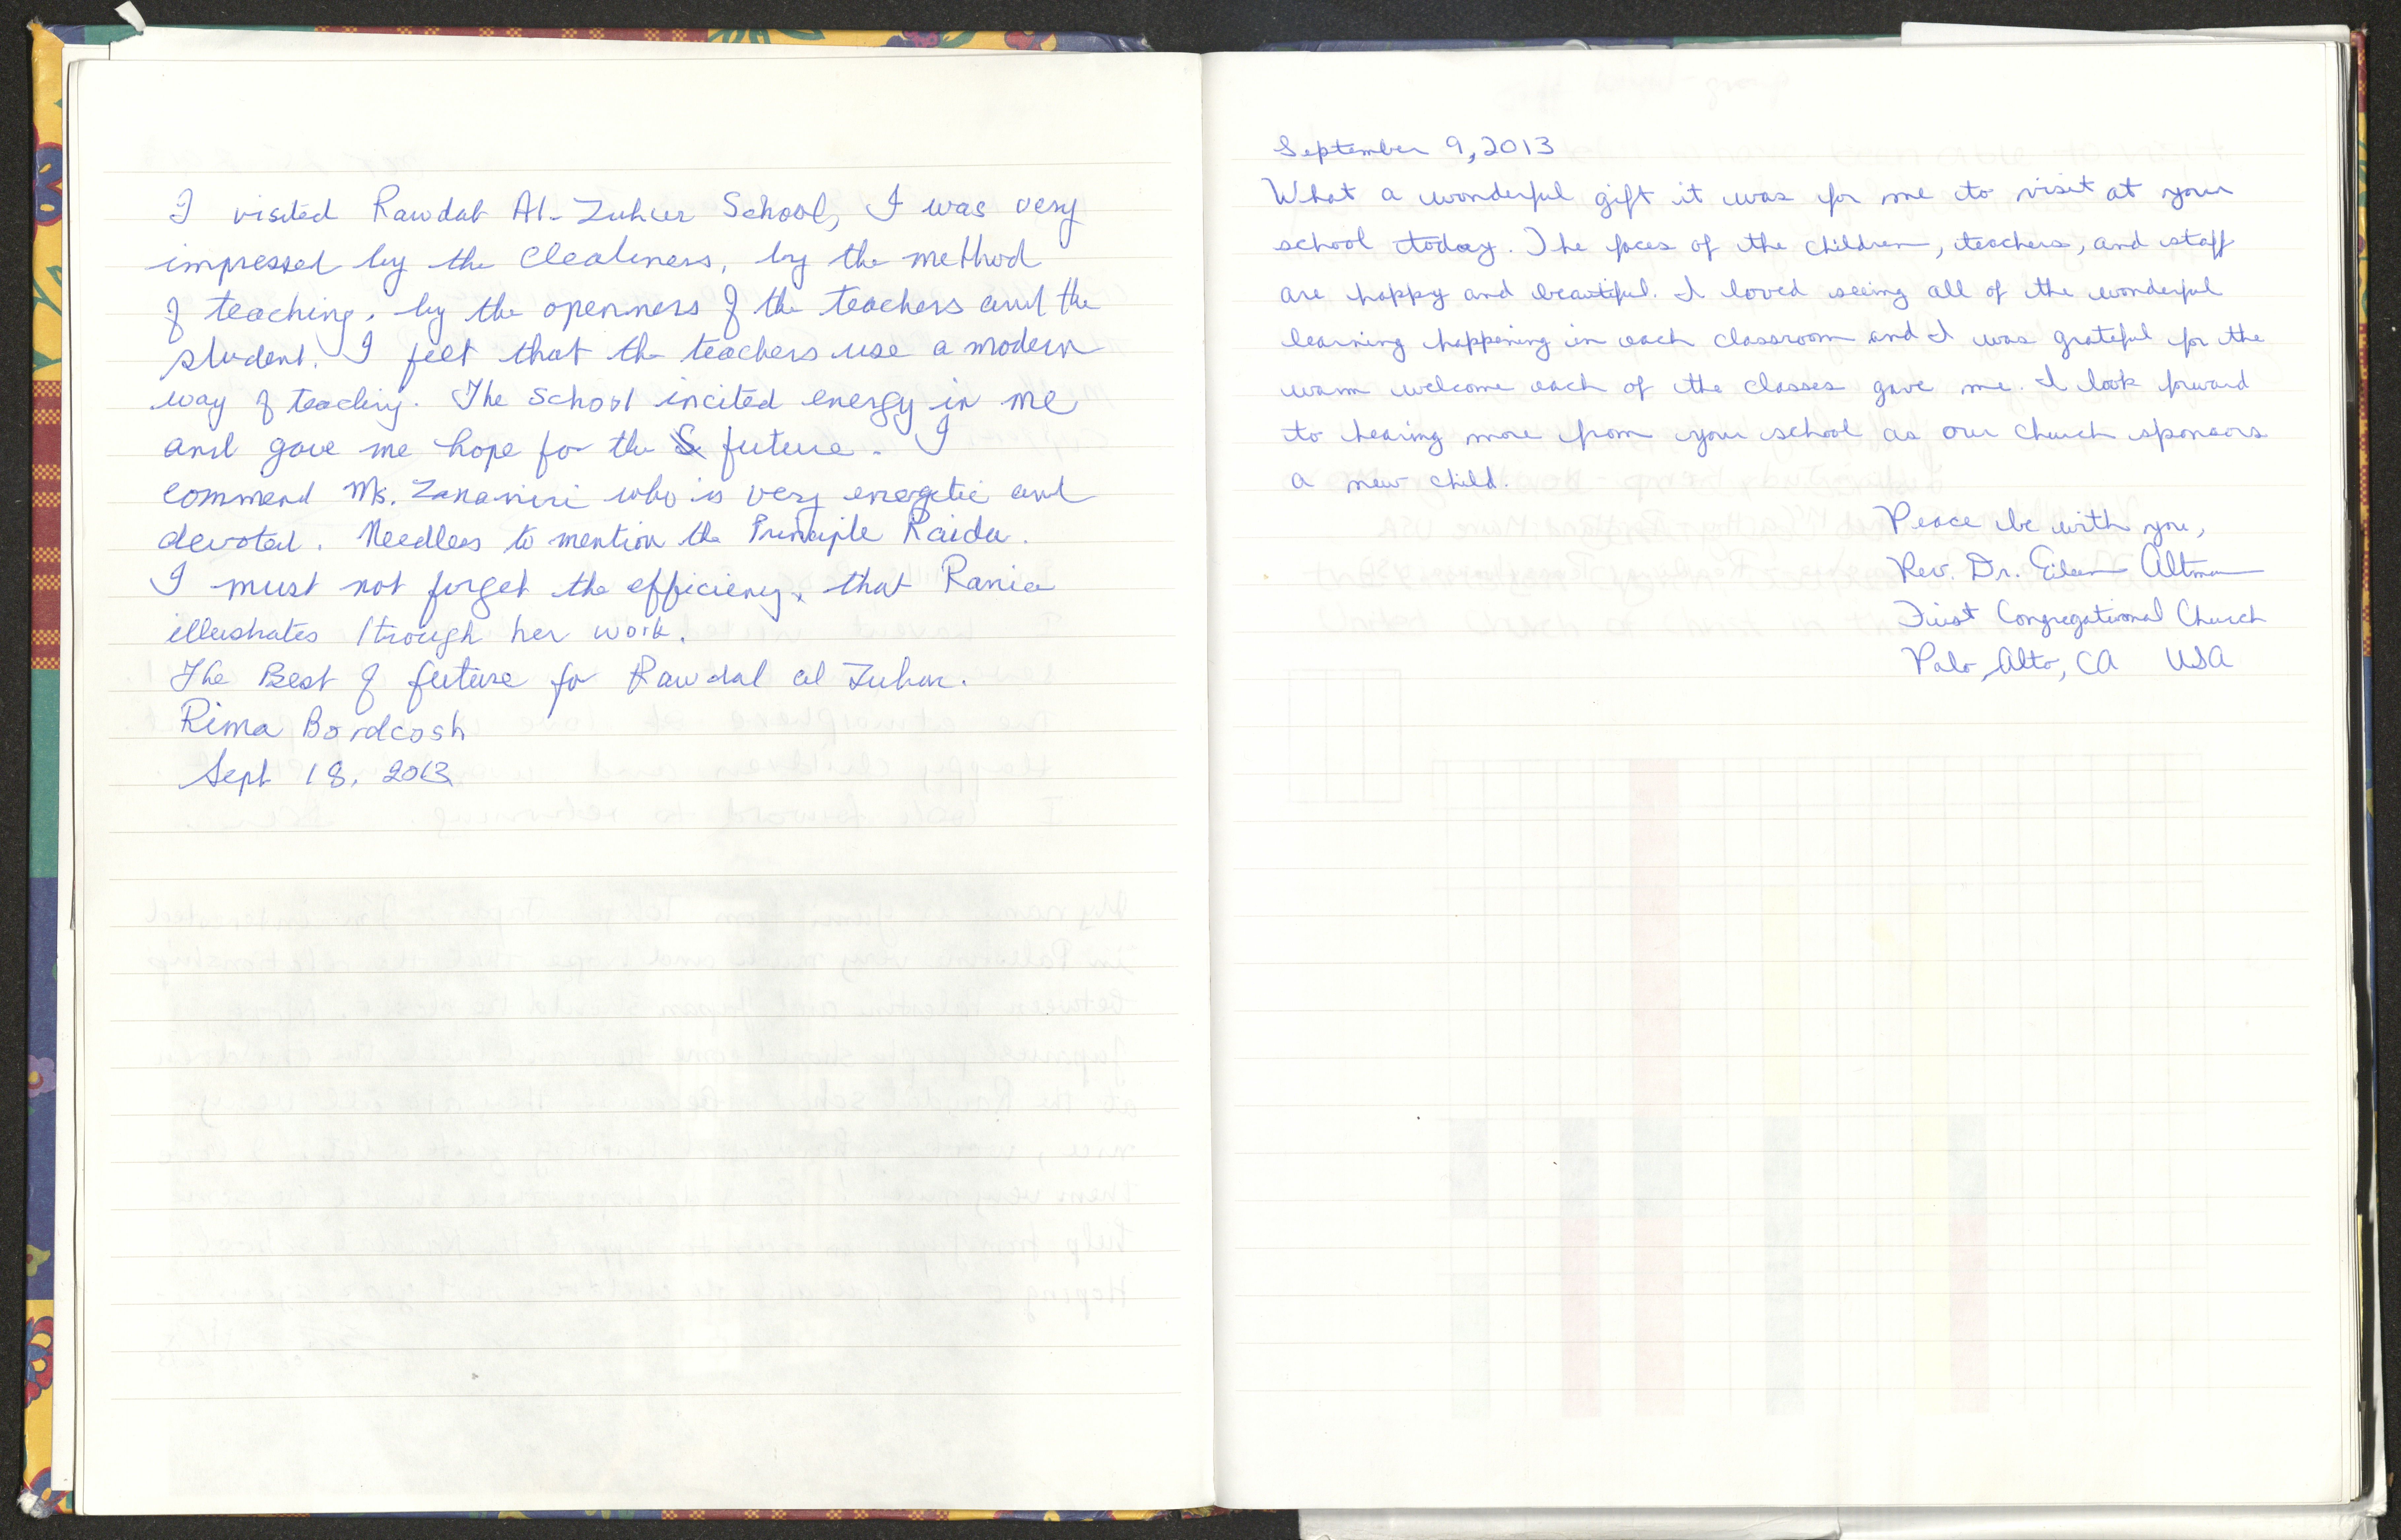 I visited Rawdat Al-Zuhur School, I was very
impressed by the Clealiness, by the method
of teaching, by the openness of the teachers and the
student. I feel that the teachers use a modern
way of teaching. The School incited energy in me
and gave me hope for the future. I
commend Ms. Zananiri who is very energetic and
devoted. Needless to mention the Principle Raida.
I must not forget the efficiency, that Rania
illustrates through her work.
The Best of future for Rawdal al Zuhur.
Rima Bordcosh
Sept 18, 2013
September 9, 2013
What a wonderful gift it was for me to visit at your
school today. The faces of the children, teachers, and staff
are happy and beautiful. I loved seeing all of the wonderful
learning happening in each classroom and I was grateful for the
warm welcome each of the classes gave me. I look forward
to hearing more from your school as our church sponsors
a new child.
Peace be with you,
Rev. Dr. Eileen Altman
First Congregational Church
Palo Alto, CA USA